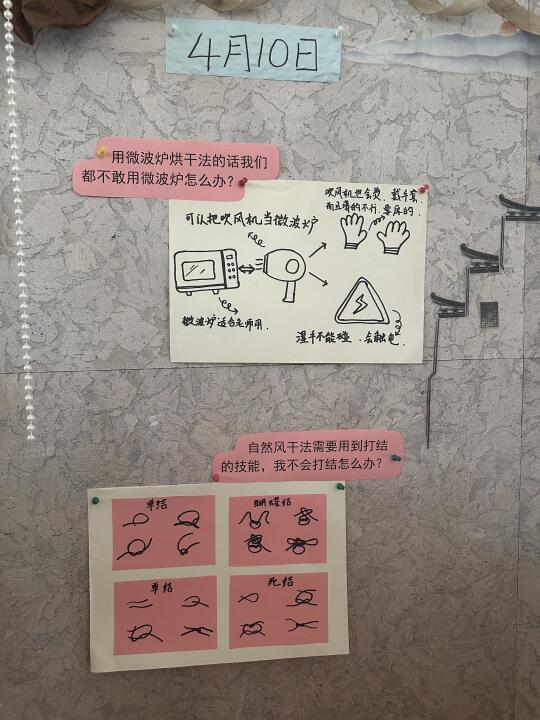 4月10日
用微波炉烘干法的话我们
都不敢用微波炉怎么办？
吹风机也会烫，戴手套，
而且薄的不行，要厚的.
可以把吹风机当微波炉
微波炉适合老师用.
湿手不能碰，会触电.
自然风干法需要用到打结
的技能，我不会打结怎么办？
单结
蝴蝶结
单结
死结